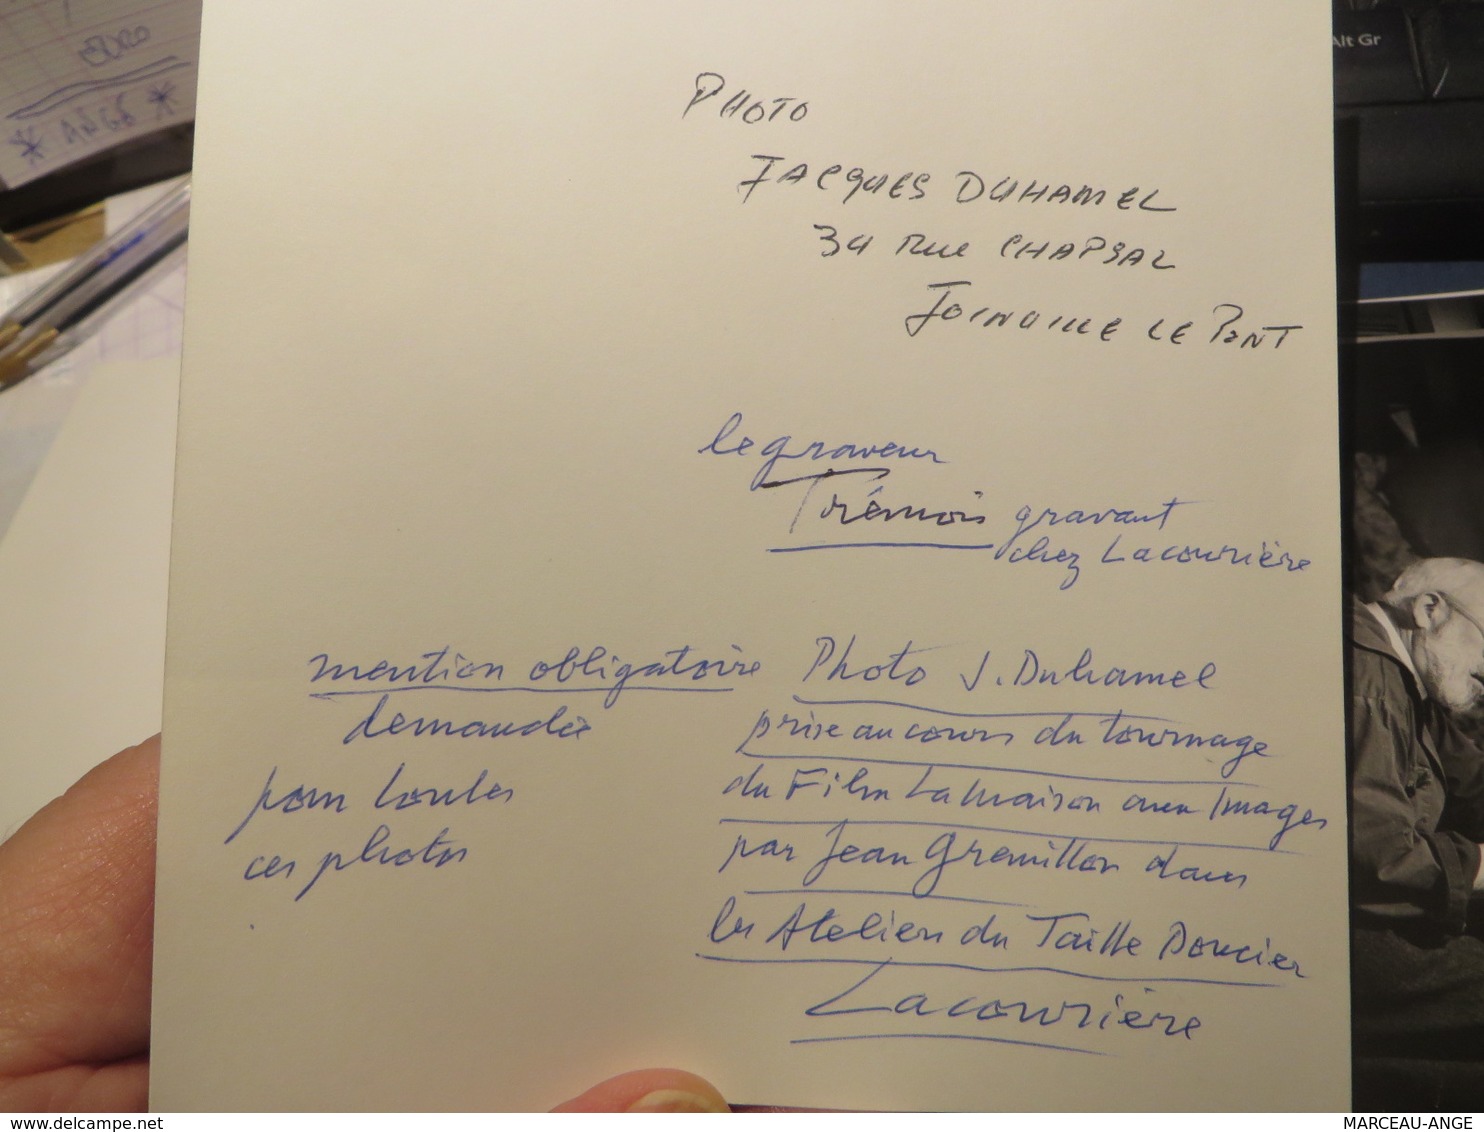 EURO
* ANGE *
Alt Gr
PHOTO
JACQUES DUHAMEL
34 Rue CHAPSAL
JOINVILLE LE PONT
le graveur
Trémois gravant
chez Lacourière
mention obligatoire
demandée
pour toutes
ces photos
Photo J. Duhamel
prise au cours du tournage
du Film La Maison aux Images
par Jean Gremillon dans
les Ateliers du Taille Doucier
Lacourière
delcampe.net
MARCEAU-ANGE